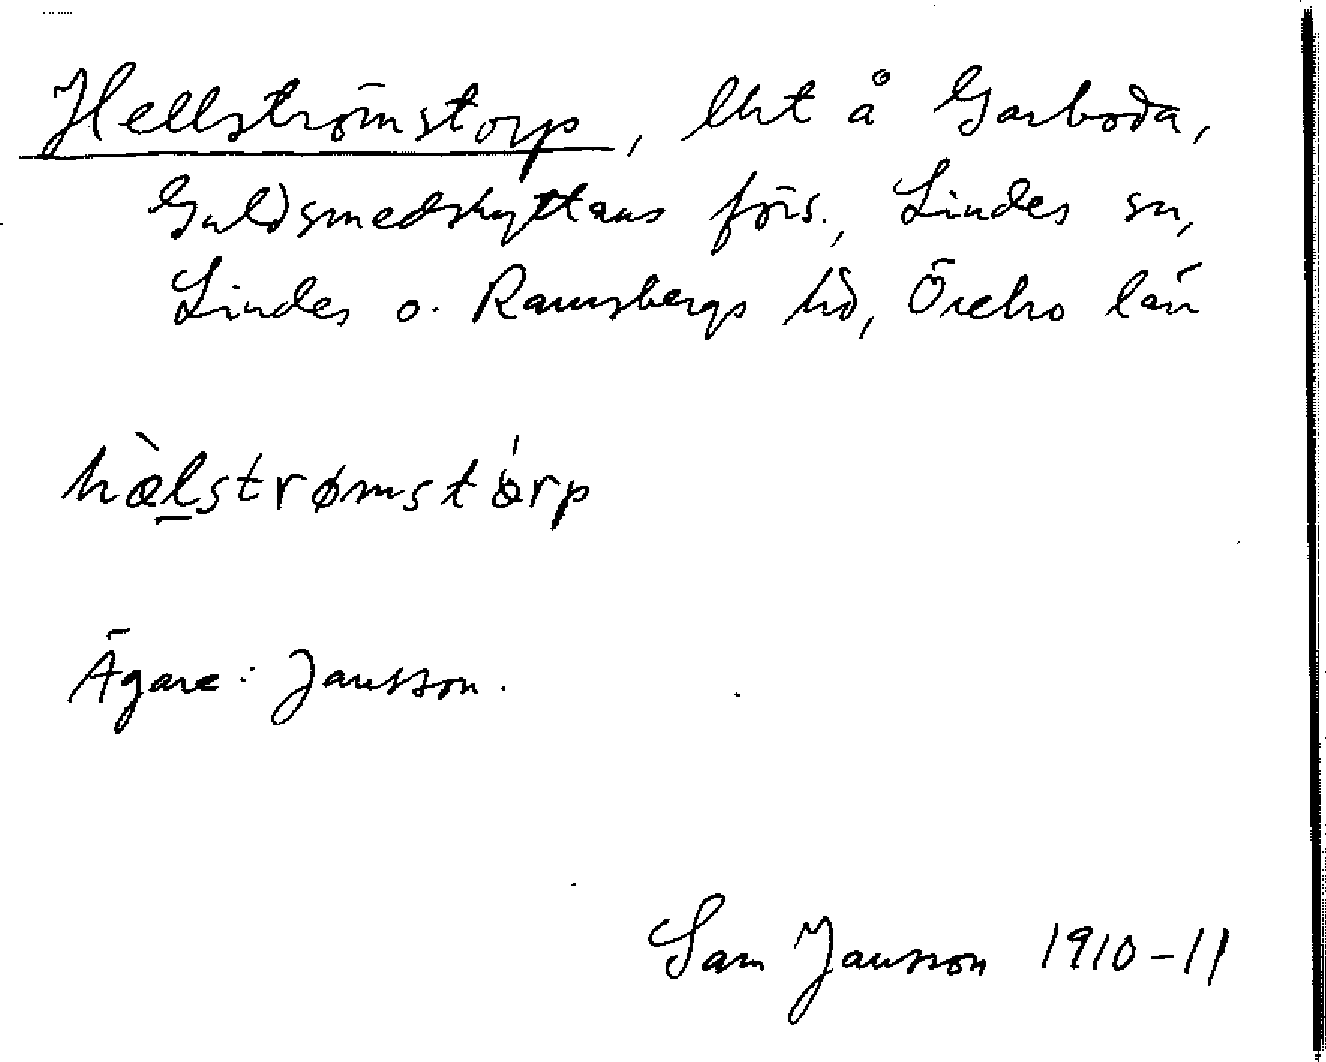 Hellströmstorp, lht å Garboda,
Guldsmedshyttans förs., Lindes sn,
Lindes o. Ramsbergs hd, Örebro län
hæ̀lstrømstɔ́rp
Ägare: Jansson.
Sam Jansson 1910-11